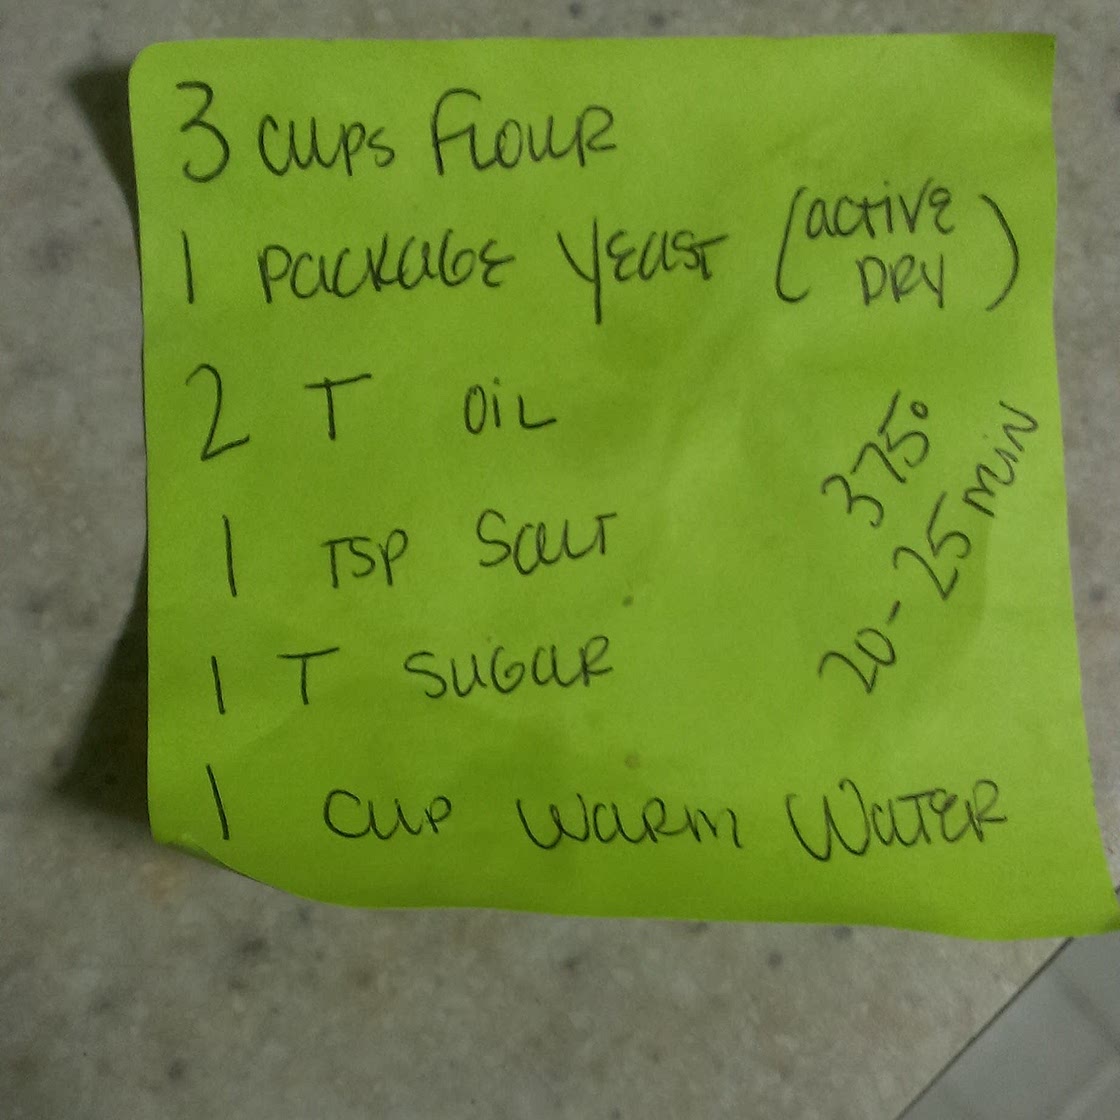 3 cups Flour
1 Package Yeast (active
DRY)
2 T Oil
1 TSP Salt
1 T Sugar
1 cup warm Water
375°
20-25 min